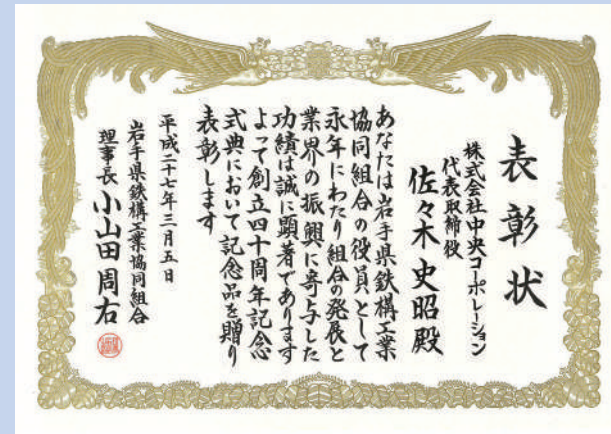 表彰状
株式会社中央コーポレーション
代表取締役
佐々木史昭殿
あなたは岩手県鉄構工業
協同組合の役員として
永年にわたり組合の発展と
業界の振興に寄与した
功績は誠に顕著であります
よって創立四十周年記念
式典において記念品を贈り
表彰します
平成二十七年三月五日
岩手県鉄構工業協同組合
理事長小山田周右